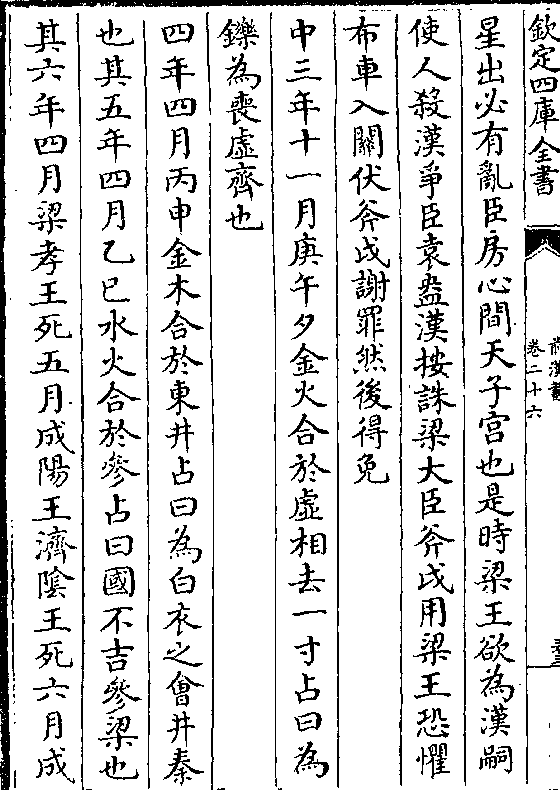 欽定四庫全書
前漢書
卷二十六
星出必有亂臣房心間天子宮也是時梁王欲為漢嗣
使人殺漢爭臣袁盎漢按誅梁大臣斧戉用梁王恐懼
布車入關伏斧戉謝罪然後得免
中三年十一月庚午夕金火合於虛相去一寸占曰為
鑠為喪虛齊也
四年四月丙申金木合於東井占曰為白衣之會井秦
也其五年四月乙巳水火合於參占曰國不吉參梁也
其六年四月梁孝王死五月成陽王濟隂王死六月成